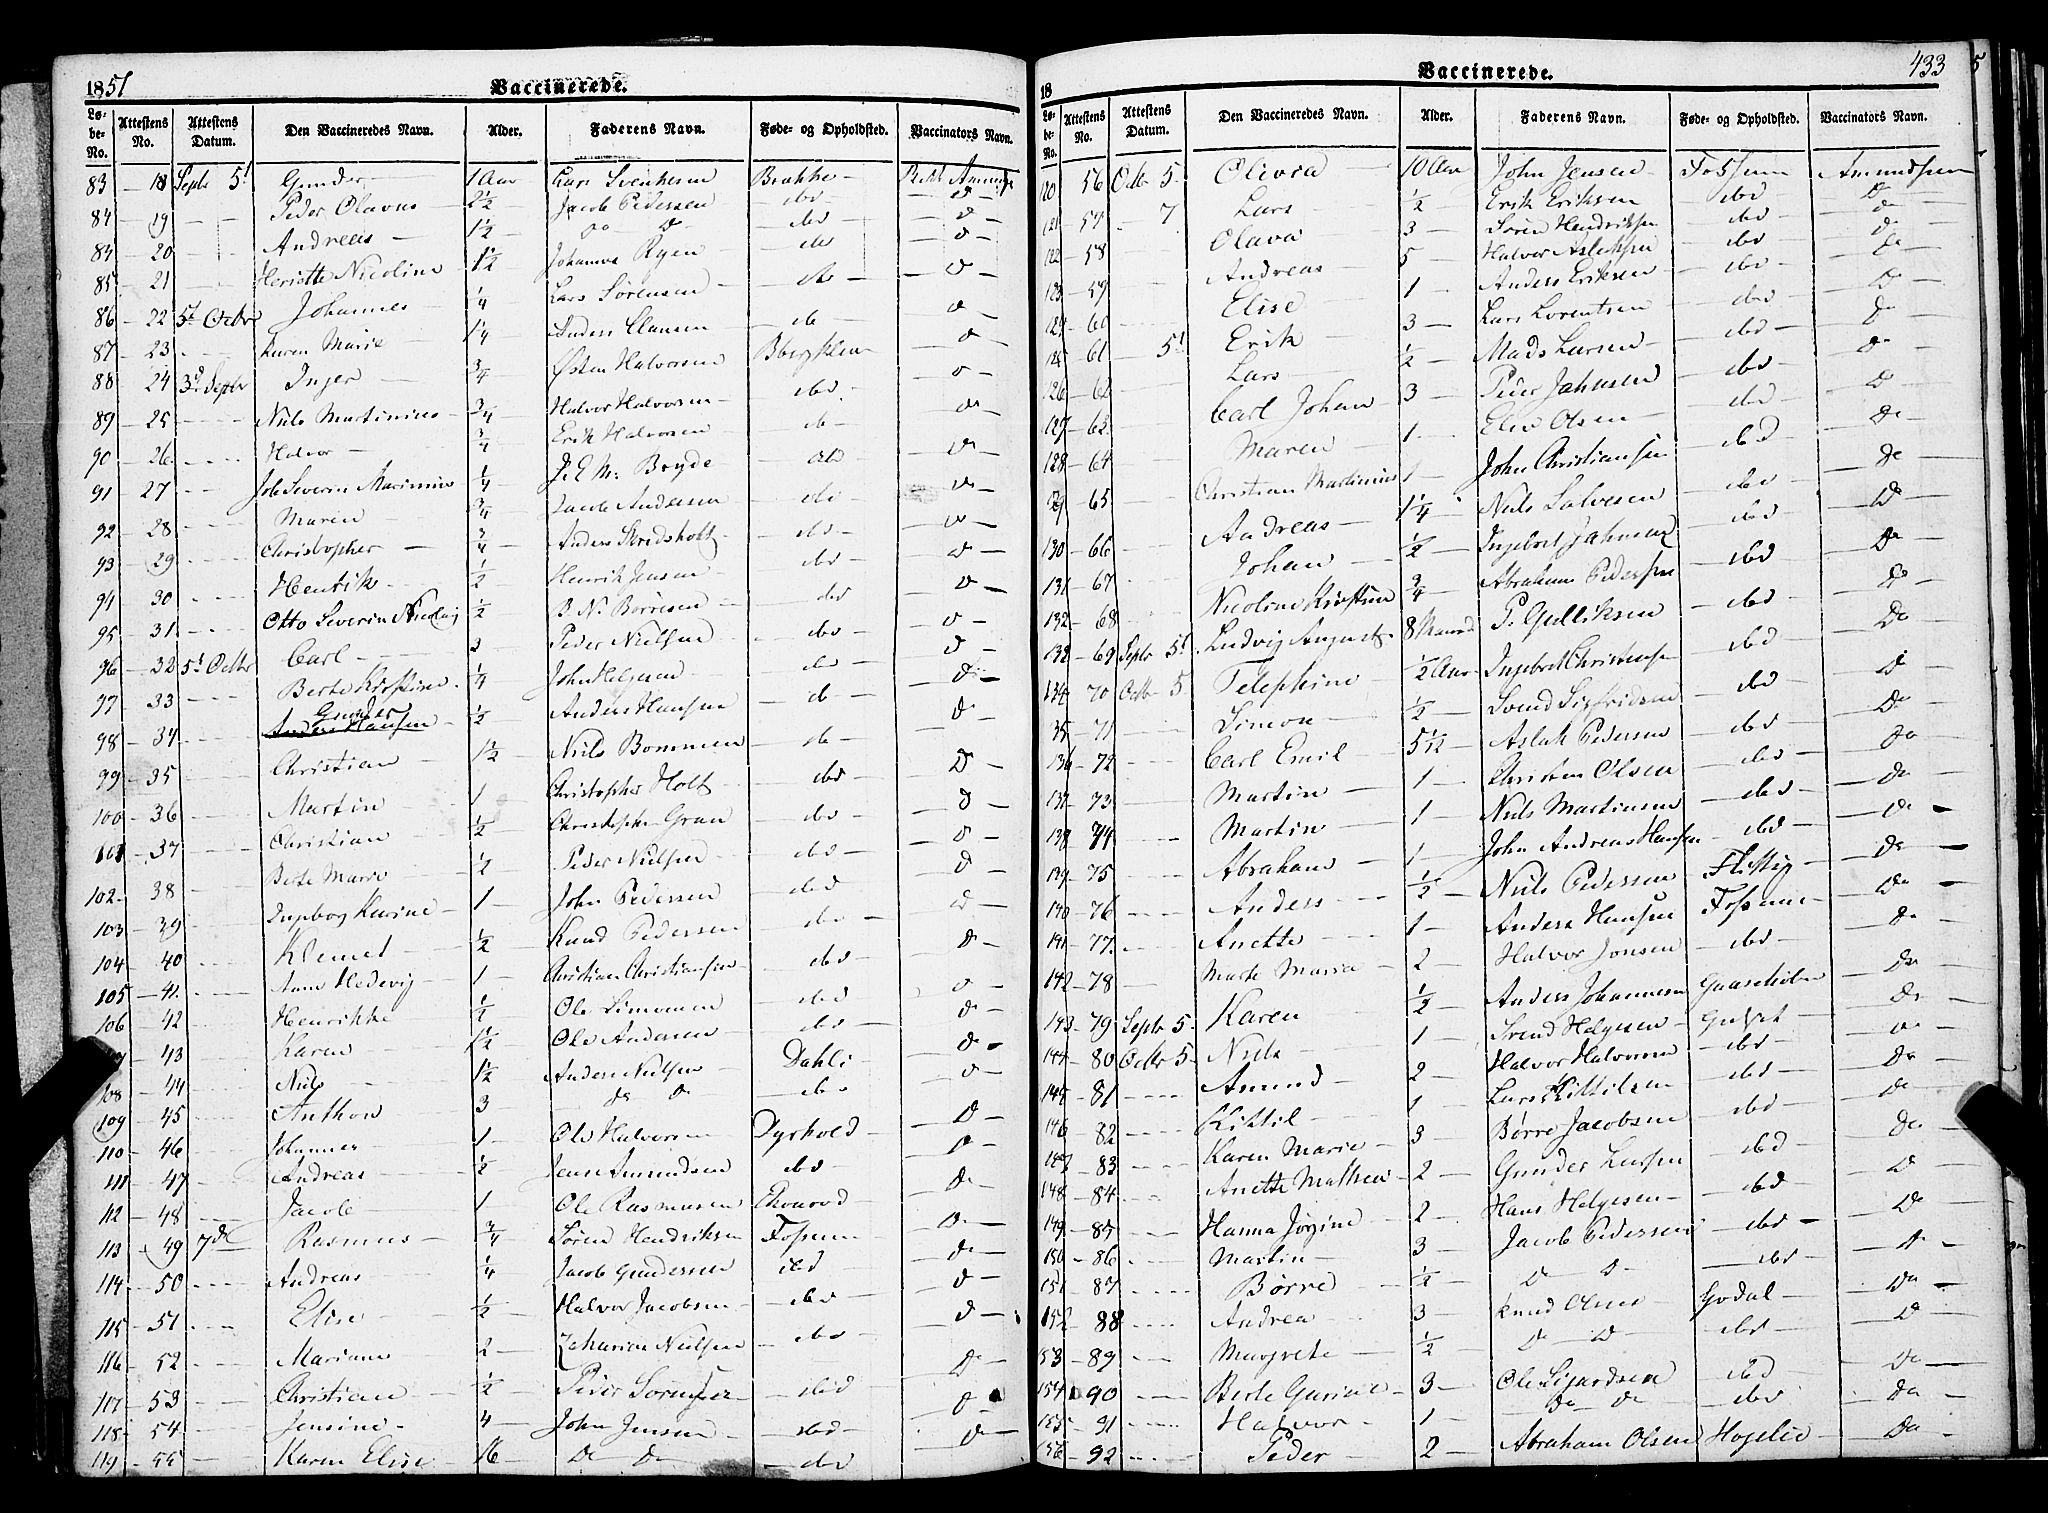 1851 Vaccinerede.
Løbe-No. Attestens No. Attestens Datum. Den Vaccineredes Navn. Alder. Faderens Navn. Føde- og Opholdsted. Vaccinators Navn.
83 18 Septr 5t Gunder 1 Aar Lars Svenkesen Brekke
84 19 Peder Olavus 2½ Jacob Pedersen ibd D
84 20 Andreas 1½ Do D ibd D
85 21 Nicoline 1½ Johannes Ryen ibd D
86 22 5t Octbr Johannes ¼ Lars Sørensen D
87 23 Karen Marie 1¼ Anders Clausen ib D
88 24 3d Septbr Inger ¾ Østen Halvorsen D
89 25 Niels Martinius ¾ Halvor Halvorsen ibd D
90 26 Halvor ¾ Erik Halvorsen ib D
91 27 Severin Marinius ¼ Bryde ibd D
92 28 Maren ¾ Jacob Andersen ibd D
93 29 Christopher ¾ Anders ibd D
94 30 Henrik ½ Henrik Jensen ibd D
95 31 Otto Severin Nicolay ½ B. N. Børresen ibd D
96 32 5t Octbr Carl 3 Peder Nielsen ibd D
97 33 Berte Kirstine ¼ John Helgesen ibd D
98 34 Gunder ½ Anders Hansen ib D
99 35 Christian 1½ Niels Bommen ib D
100 36 Martin 1 Christopher Holt ibd D
101 37 Christian ½ Christopher Gran ibd D
102 38 Berte Marie ½ Peder Nielsen ibd D
103 39 Ingebog Karine 1 John Pedersen ibd D
104 40 Klemet ½ Knud Pedersen ibd D
105 41 Anne Hedevig 1 Christian Christiansen ibd D
106 42 Henrikke ½ Ole Simonsen ibd D
43 Karen 1½ Ole Andersen ibd D
108 44 Niels 1½ Anders Nielsen Dahli D
109 45 Anthon 3 Do D ibd
110 46 Johannes 1 Ole Halvorsen Dyrhold D
111 47 Andreas ½ Jens Amundsen ibd D
112 48 Jacob 1 Ole Rasmusen D
113 49 7de Rasmus ¾ Søren Hendriksen Fossum D
114 50 Andreas ¼ Jacob Gundersen ibd D
115 51 Elise ½ Halvor Jacobsen ibd D
116 52 Mariane 2 Zakarias Nielsen ibd D
117 53 Christian ½ Peder Sørensen ibd D
118 54 Jensine 4 John Jensen ibd D
119 55 Karen Elise 16 Do Do ibd D
18 Vaccinerede. 433
Løbe-No. Attestens No. Attestens Datum. Den Vaccineredes Navn. Alder. Faderens Navn. Føde- og Opholdsted. Vaccinators Navn.
120 56 Octb 5 Olivia 10 Aar John Jensen Fossum Amundsen
121 57 7 Lars ½ Erik Eriksen ibd Do
122 58 Olava 3 Søren Hendriksen ibd Do
123 59 Andreas 5 Halvor Aslaksen ibd Do
124 60 Elise 1 Anders Eriksen ibd Do
125 61 5t Erik 3 Lars Lorentsen ibd Do
126 62 Lars ½ Mads Larsen ibd Do
127 63 Carl Johan 3 Peder Jahnsen ibd Do
128 64 Maren 1 Olsen ibd Do
129 65 Christian Martinius 1 John Christiansen ibd Do
130 66 Andreas 1¼ Niels Salvesen ibd Do
131 67 Johan ½ Ingebret Jahnsen ibd Do
132 68 Nicoline Kirstine ¾ Abraham Pedersen ibd Do
132 69 Septr 5t Ludvig August 8 Maaned P. Gulliksen ibd Do
134 70 Octb 5 Telephine ½ Aar Ingebret Christensen ibd Do
35 71 Simon ½ Svend Sigfridsen ibd Do
136 72 Carl Emil 5½ Aslak Pedersen ibd Do
137 73 Martin 1 Christen Olsen ibd Do
138 74 Martin 1 Niels Martinsen ibd Do
139 75 Abraham 1 John Andreas Hansen ibd Do
140 76 Anders ½ Niels Pedersen Flittig Do
141 77 Anette 1 Anders Hansen Fossum Do
142 78 Marte Maria 2 Halvor Jonsen ibd Do
143 79 Septr 5 Karen ½ Anders Johannesen Gaasehølen Do
144 80 Octbr 5 Niels 1 Svend Helgesen Gulset Do
145 81 Amund 2 Halvor Halvorsen ibd Do
146 82 Kittil 1 Lars Kittilsen ibd Do
147 83 Karen Marie 3 Børre Jacobsen ibd Do
148 84 Anette Mathea 2 Gunder Larsen ibd Do
149 85 Hanna Jørgine 2 Hans Helgesen ibd Do
150 86 Martin 3 Jacob Pedersen ibd Do
151 87 Børre ½ D D ibd D
152 88 Andrea 3 Knud Olsen Godal Do
153 89 Margrete ½ D D ibd D
154 90 Berte Gurine 3 Ole Sigardsen ibd Do
155 91 Halvor 1 Do Do ibd Do
156 92 Peder 2 Abraham Olsen Hogelie Do